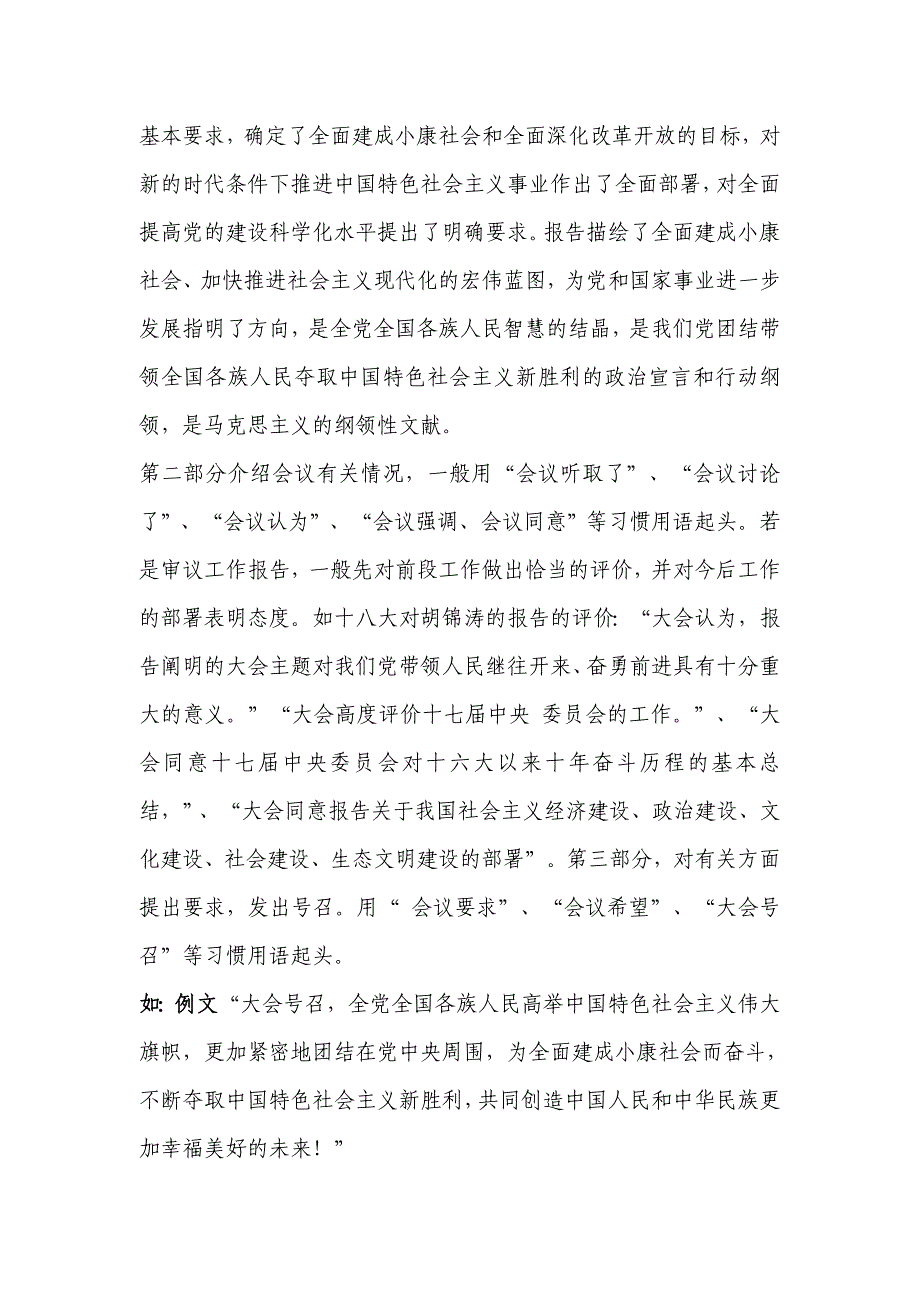 基本要求，确定了全面建成小康社会和全面深化改革开放的目标，对
新的时代条件下推进中国特色社会主义事业作出了全面部署，对全面
提高党的建设科学化水平提出了明确要求。报告描绘了全面建成小康
社会、加快推进社会主义现代化的宏伟蓝图，为党和国家事业进一步
发展指明了方向，是全党全国各族人民智慧的结晶，是我们党团结带
领全国各族人民夺取中国特色社会主义新胜利的政治宣言和行动纲
领，是马克思主义的纲领性文献。
第二部分介绍会议有关情况，一般用“会议听取了”、“会议讨论
了”、“会议认为”、“会议强调、会议同意”等习惯用语起头。若
是审议工作报告，一般先对前段工作做出恰当的评价，并对今后工作
的部署表明态度。如十八大对胡锦涛的报告的评价：“大会认为，报
告阐明的大会主题对我们党带领人民继往开来、奋勇前进具有十分重
大的意义。”“大会高度评价十七届中央 委员会的工作。”、“大
会同意十七届中央委员会对十六大以来十年奋斗历程的基本总
结，”、“大会同意报告关于我国社会主义经济建设、政治建设、文
化建设、社会建设、生态文明建设的部署”。第三部分，对有关方面
提出要求，发出号召。用“ 会议要求”、“会议希望”、“大会号
召”等习惯用语起头。
如：例文“大会号召，全党全国各族人民高举中国特色社会主义伟大
旗帜，更加紧密地团结在党中央周围，为全面建成小康社会而奋斗，
不断夺取中国特色社会主义新胜利，共同创造中国人民和中华民族更
加幸福美好的未来！”